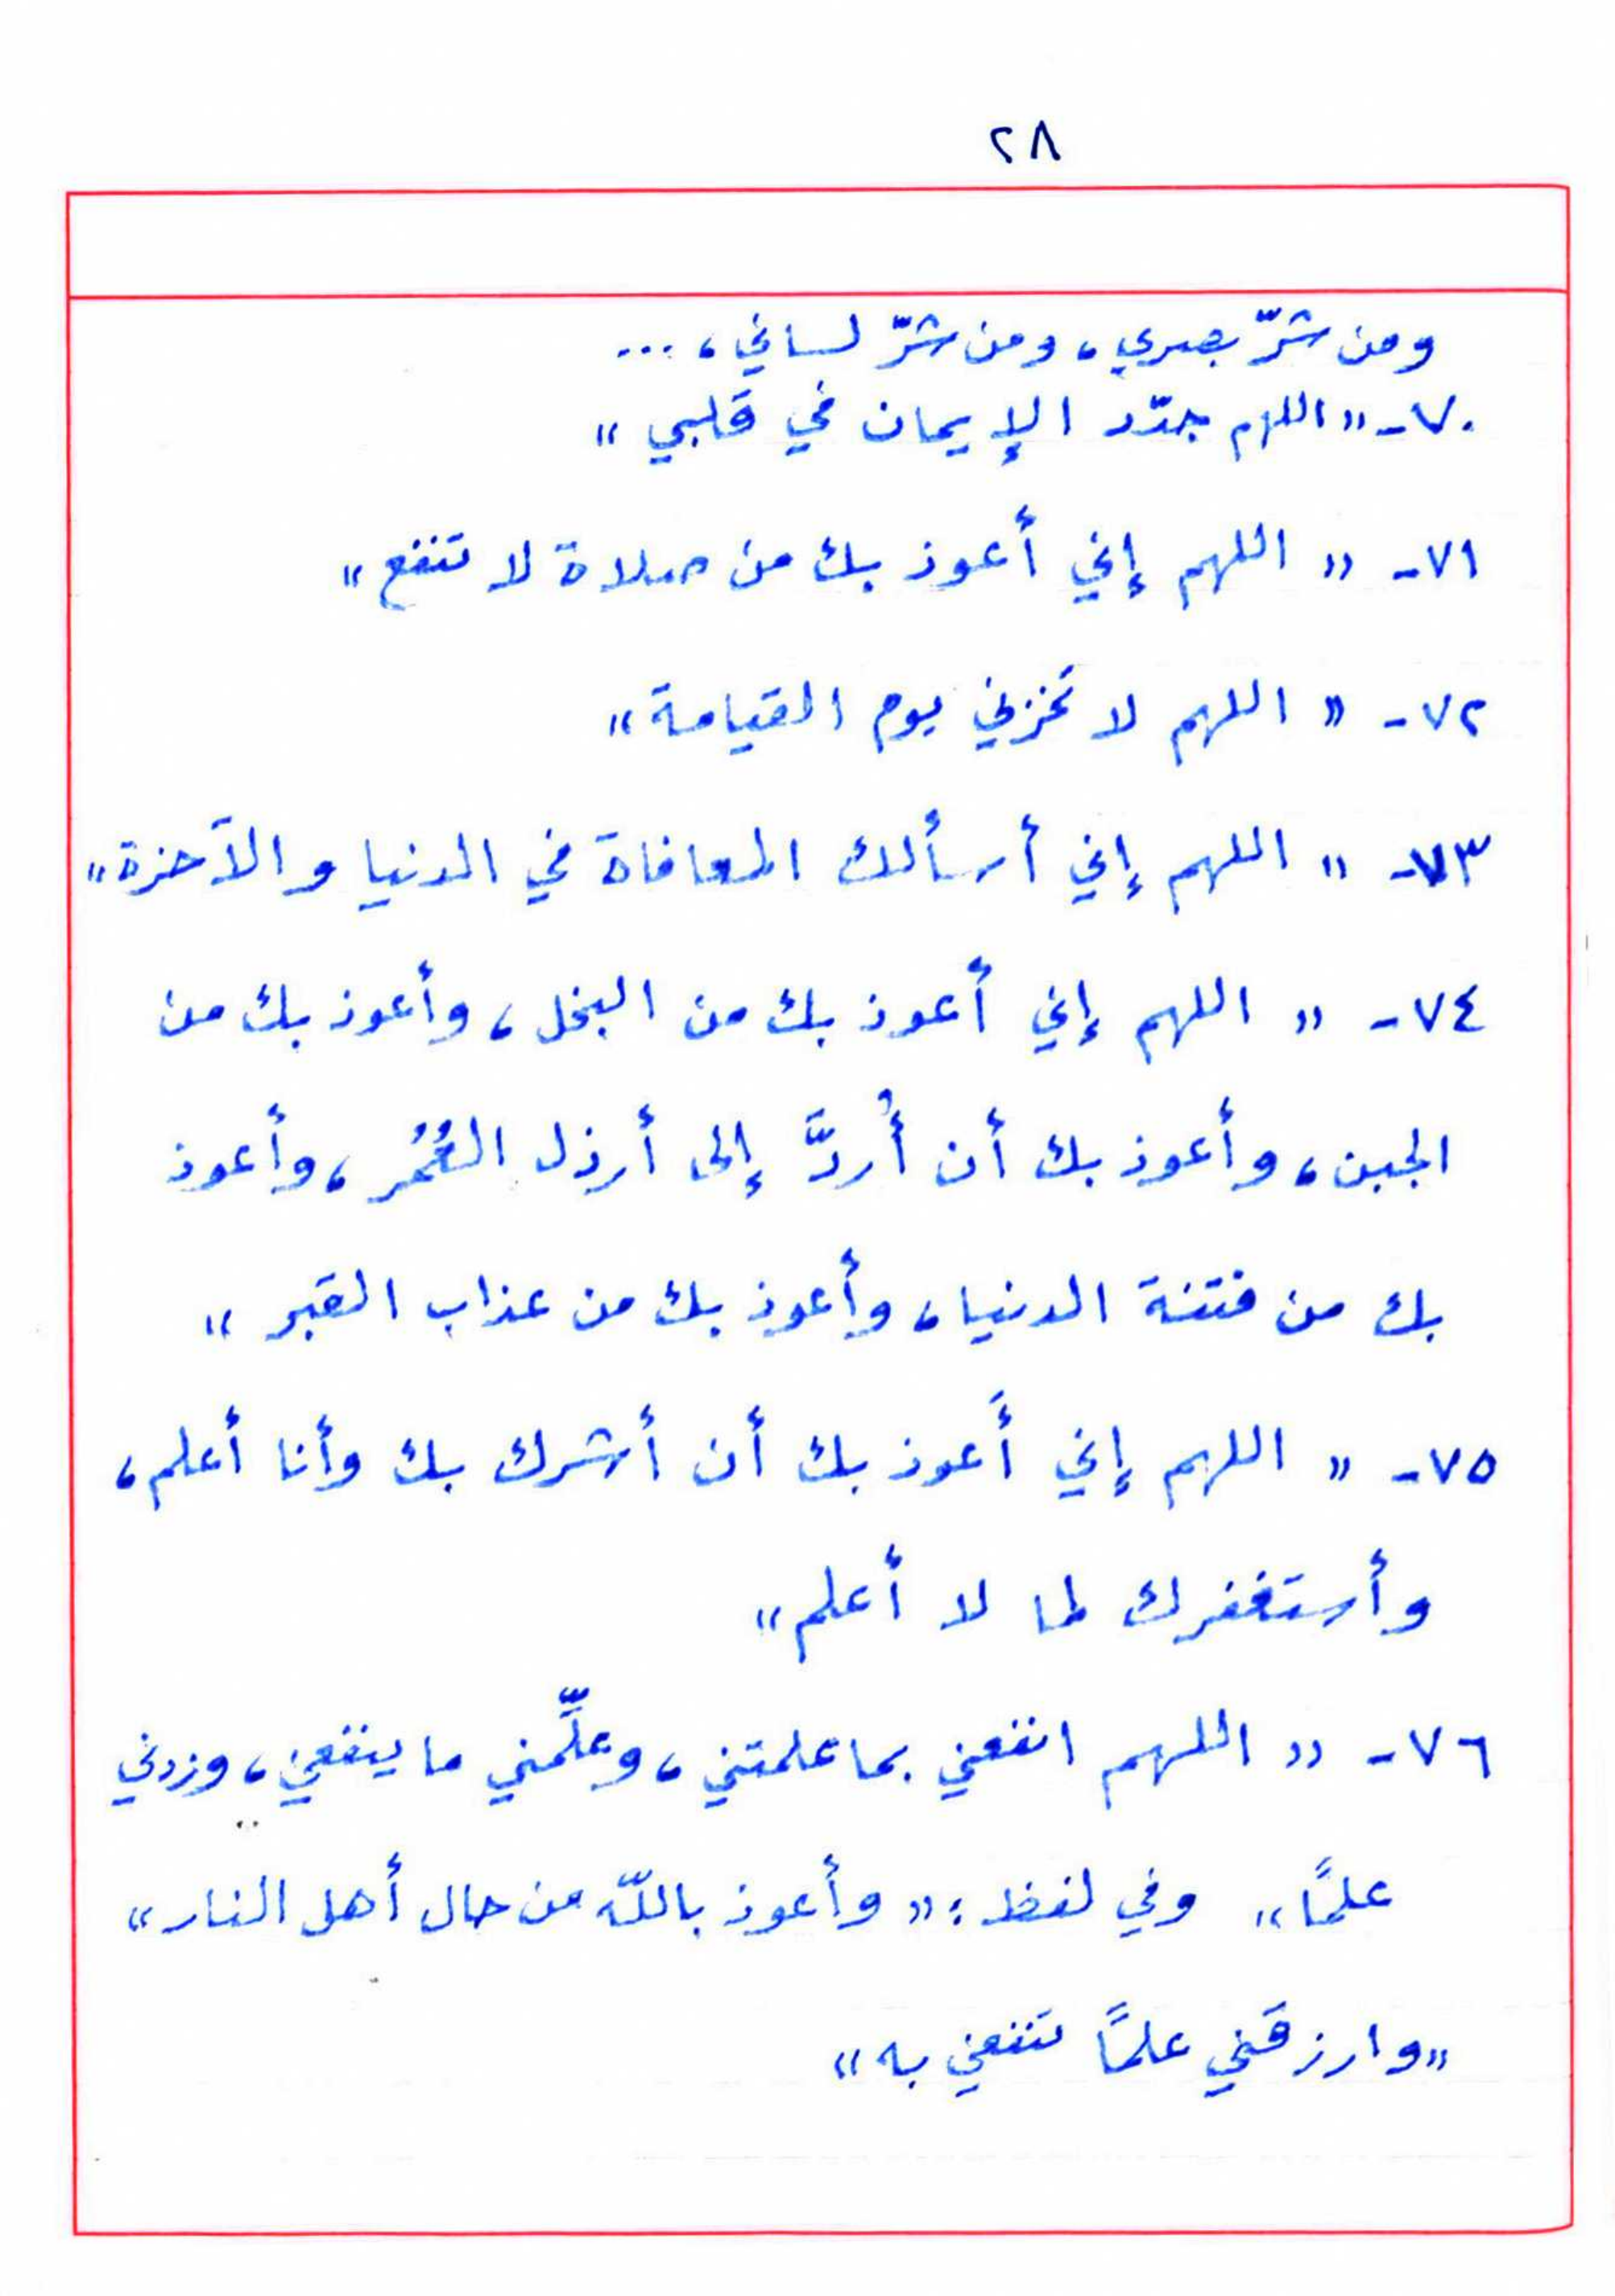 ٢٨
ومن شرّ بصري، ومن شرّ لساني، ...
٧٠- "اللهم جدّد الإيمان في قلبي"
٧١- "اللهم إني أعوذ بك من صلاة لا تنفع"
٧٢- "اللهم لا تَخزني يوم القيامة"
٧٣- "اللهم إني أسألك المعافاة في الدنيا والآخرة"
٧٤- "اللهم إني أعوذ بك من البخل، وأعوذ بك من
الجبن، وأعوذ بك أن أُردَّ إلى أرذل العُمُر، وأعوذ
بك من فتنة الدنيا، وأعوذ بك من عذاب القبر"
٧٥- "اللهم إني أَعوذ بك أن أشرك بك وأنا أعلم،
وأستغفرك لما لا أعلم"
٧٦- "اللهم انفعني بما علمتني، وعلِّمني ما ينفعني، وزدني
علمًا" وفي لفظ: "وأعوذ باللّه من حال أهل النار"
"وارزقني علمًا تنفعني به"